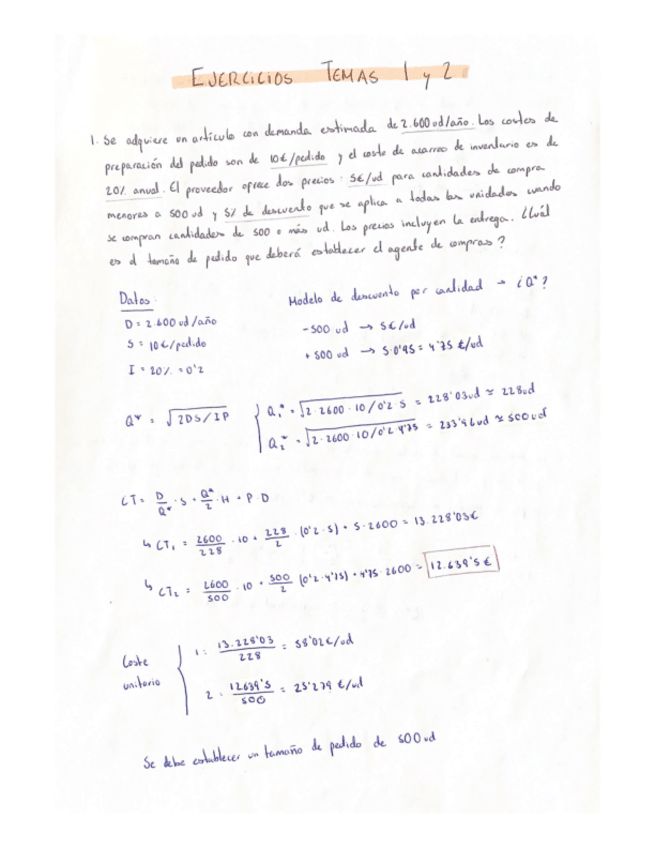 EJERCICIOS TEMAS 1 y 2
1. Se adquiere un artículo con demanda estimada de 2.600 ud/año. Los costes de
preparación del pedido son de 10€/pedido y el coste de acarreo de inventario es de
20% anual. El proveedor ofrece dos precios: 5€/ud para cantidades de compra
menores a 500 ud y 5% de descuento que se aplica a todas las unidades cuando
se compran cantidades de 500 o más ud. Los precios incluyen la entrega. ¿Cuál
es el tamaño de pedido que deberá establecer el agente de compras?
Datos:
D = 2.600 ud/año
S = 10€/pedido
I = 20% = 0'2
Modelo de descuento por cantidad → ¿Q*?
-500 ud → 5€/ud
+500 ud → 5·0'95 = 4'75 €/ud
Q* = √2DS/IP
Q₁* = √2·2600·10/0'2·5 = 228'03ud ≃ 228ud
Q₂* = √2·2600·10/0'2·4'75 = 233'96ud ≃ 500ud
CT = D/Q* · S + Q*/2 · H + P·D
↳ CT₁ = 2600/228 · 10 + 228/2 · (0'2·5) + 5·2600 = 13.228'03€
↳ CT₂ = 2600/500 · 10 + 500/2 (0'2·4'75) + 4'75·2600 = 12.639'5 €
Coste unitario
1: 13.228'03/228 = 58'02€/ud
2: 12639'5/500 = 25'279 €/ud
Se debe establecer un tamaño de pedido de 500 ud